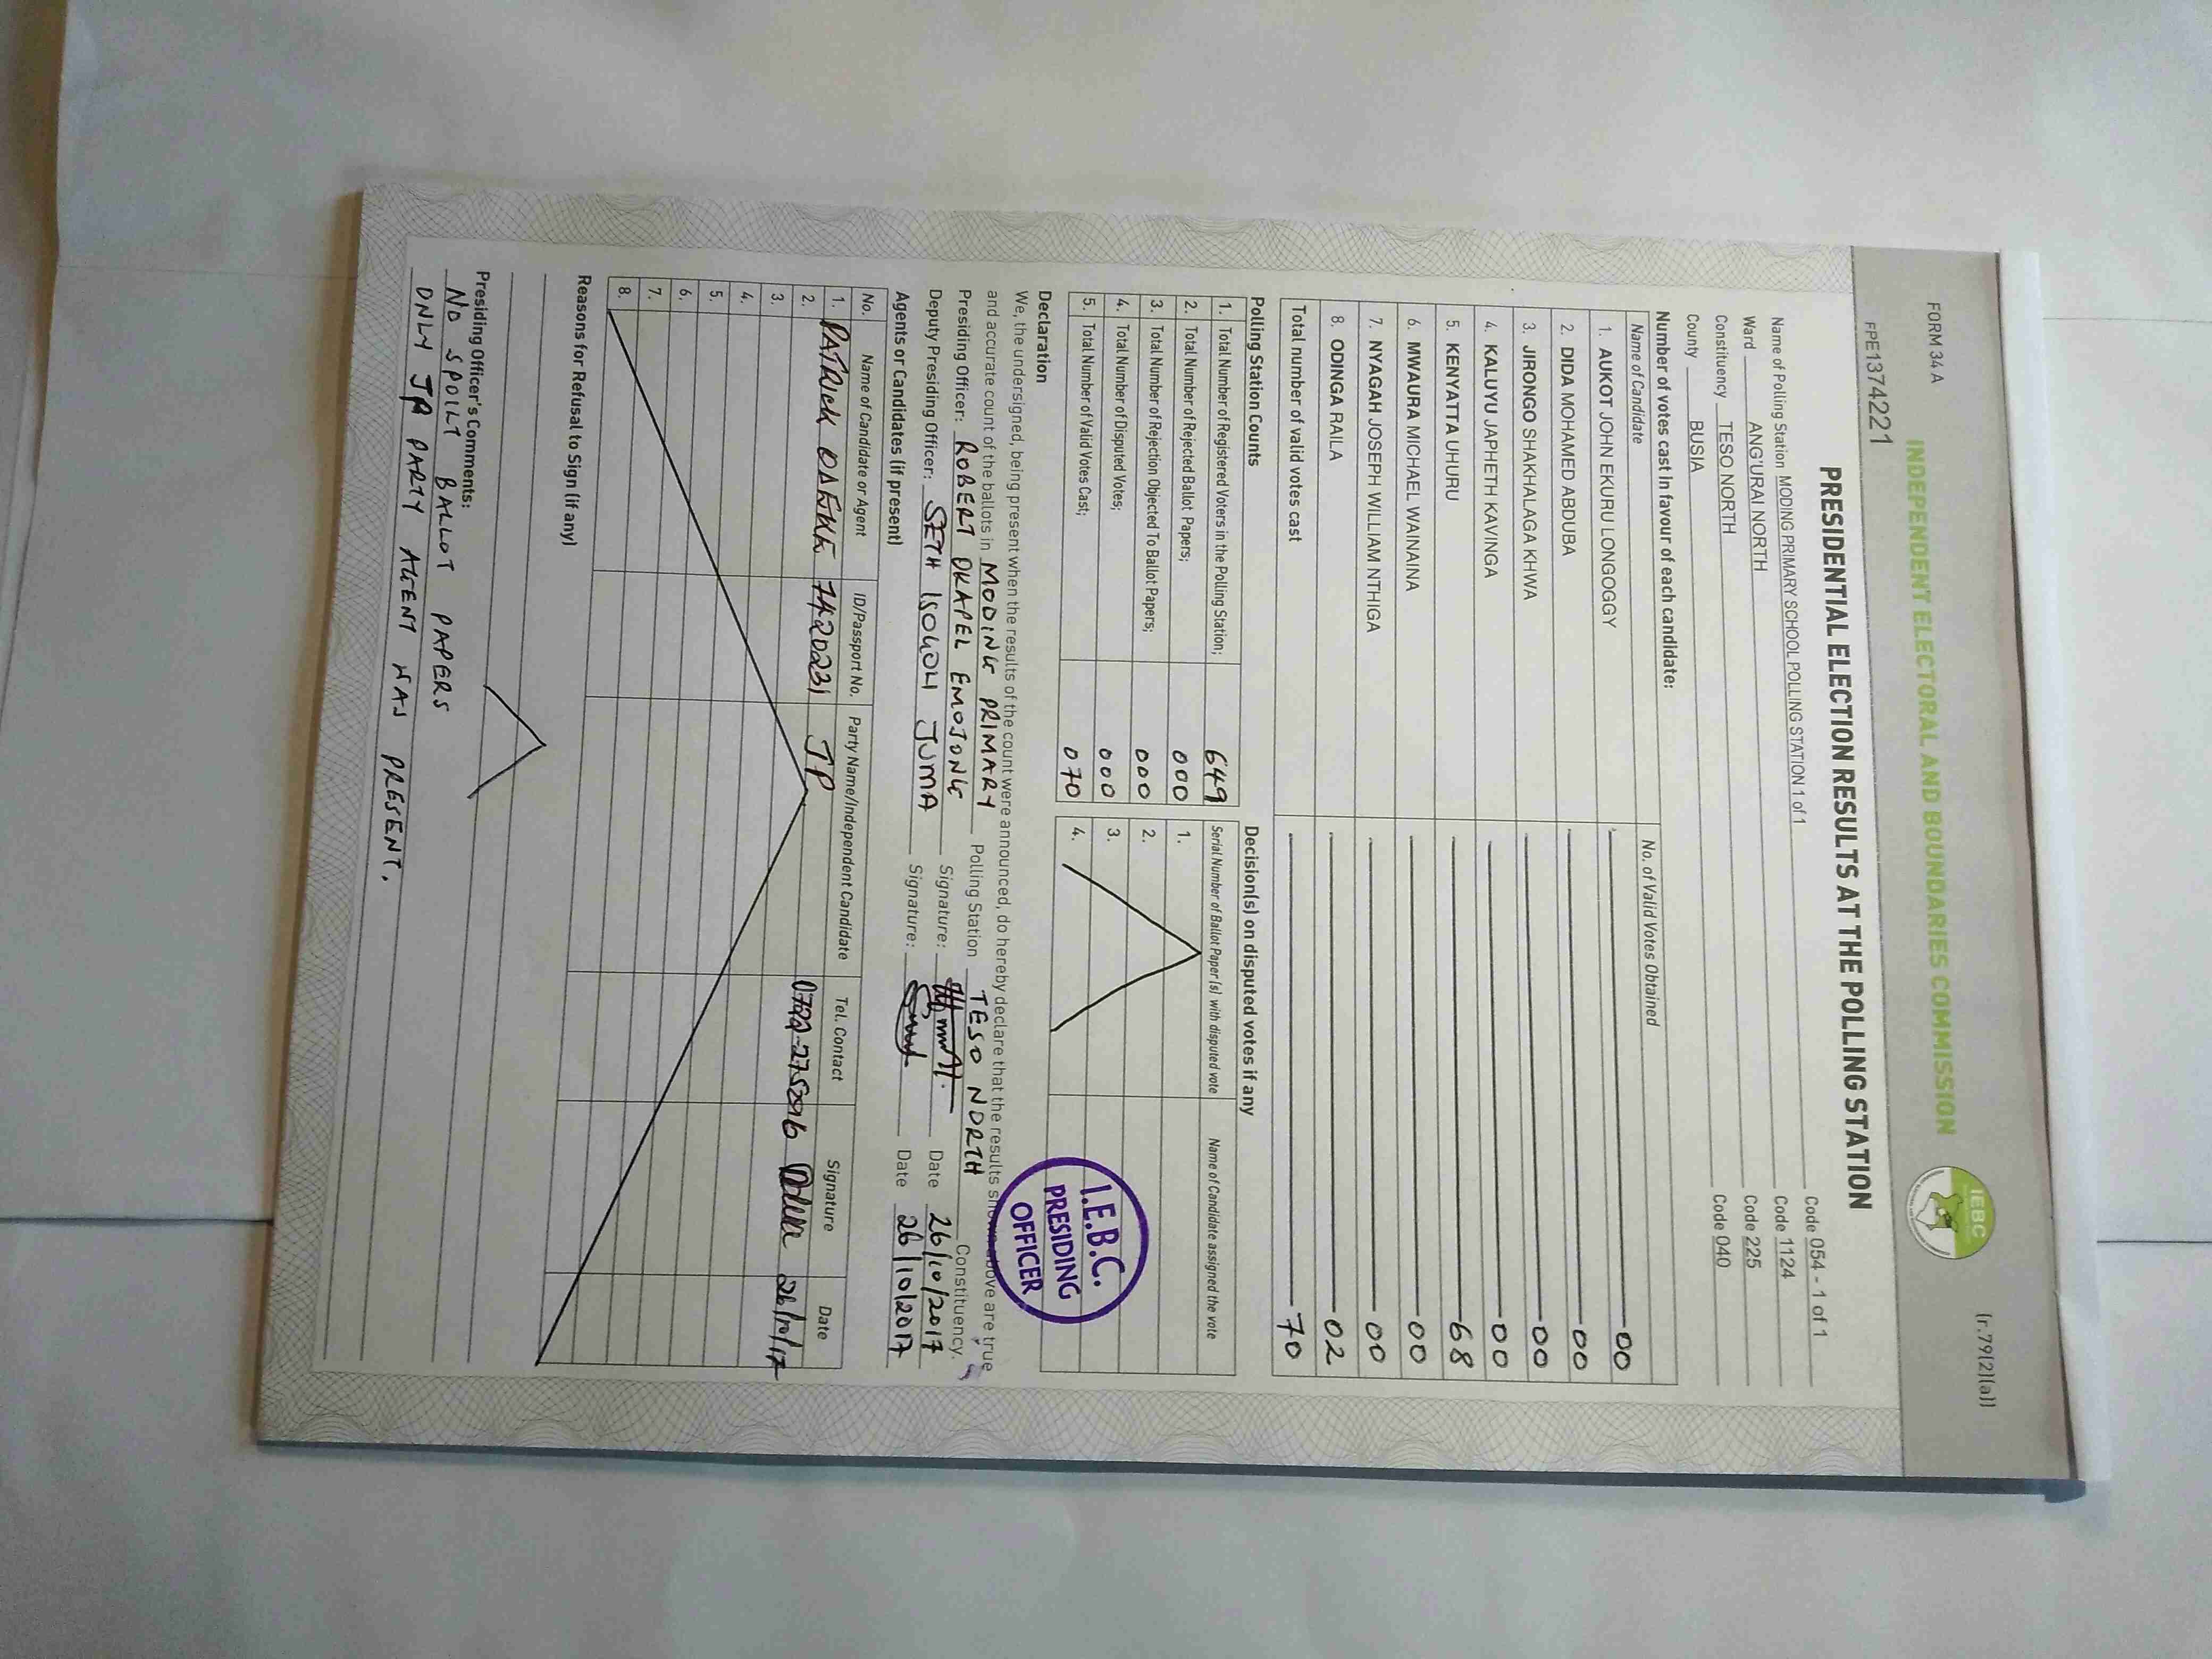 FORM 34 A
(r.79(2)(a))
INDEPENDENT ELECTORAL AND BOUNDARIES COMMISSION
IEBC
FPE1374221
PRESIDENTIAL ELECTION RESULTS AT THE POLLING STATION
Name of Polling Station MODING PRIMARY SCHOOL POLLING STATION 1 of 1 Code 054 - 1 of 1
Ward ANG'URAI NORTH Code 1124
Constituency TESO NORTH Code 225
County BUSIA Code 040
Number of votes cast in favour of each candidate:
Name of Candidate No. of Valid Votes Obtained
1. AUKOT JOHN EKURU LONGOGGY 00
2. DIDA MOHAMED ABDUBA 00
3. JIRONGO SHAKHALAGA KHWA 00
4. KALUYU JAPHETH KAVINGA 00
5. KENYATTA UHURU 68
6. MWAURA MICHAEL WAINAINA 00
7. NYAGAH JOSEPH WILLIAM NTHIGA 00
8. ODINGA RAILA 02
Total number of valid votes cast 70
Polling Station Counts
1. Total Number of Registered Voters in the Polling Station; 649
2. Total Number of Rejected Ballot Papers; 000
3. Total Number of Rejection Objected To Ballot Papers; 000
4. Total Number of Disputed Votes; 000
5. Total Number of Valid Votes Cast; 070
Decision(s) on disputed votes if any
Serial Number of Ballot Paper(s) with disputed vote Name of Candidate assigned the vote
1.
2.
3.
4.
I.E.B.C.
PRESIDING
OFFICER
Declaration
We, the undersigned, being present when the results of the count were announced, do hereby declare that the results shown above are true
and accurate count of the ballots in MODING PRIMARY Polling Station TESO NORTH Constituency.
Presiding Officer: ROBERT OKAPEL EMOJONG Signature: Date 26/10/2017
Deputy Presiding Officer: SETH JUMA Signature: Date 26/10/2017
Agents or Candidates (if present)
No. Name of Candidate or Agent ID/Passport No. Party Name/Independent Candidate Tel. Contact Signature Date
1. PATRICK JP 26/10/17
2.
3.
4.
5.
6.
7.
8.
Reasons for Refusal to Sign (if any)
Presiding Officer's Comments:
NO SPOILT BALLOT PAPERS
ONLY JP PARTY AGENT WAS PRESENT.